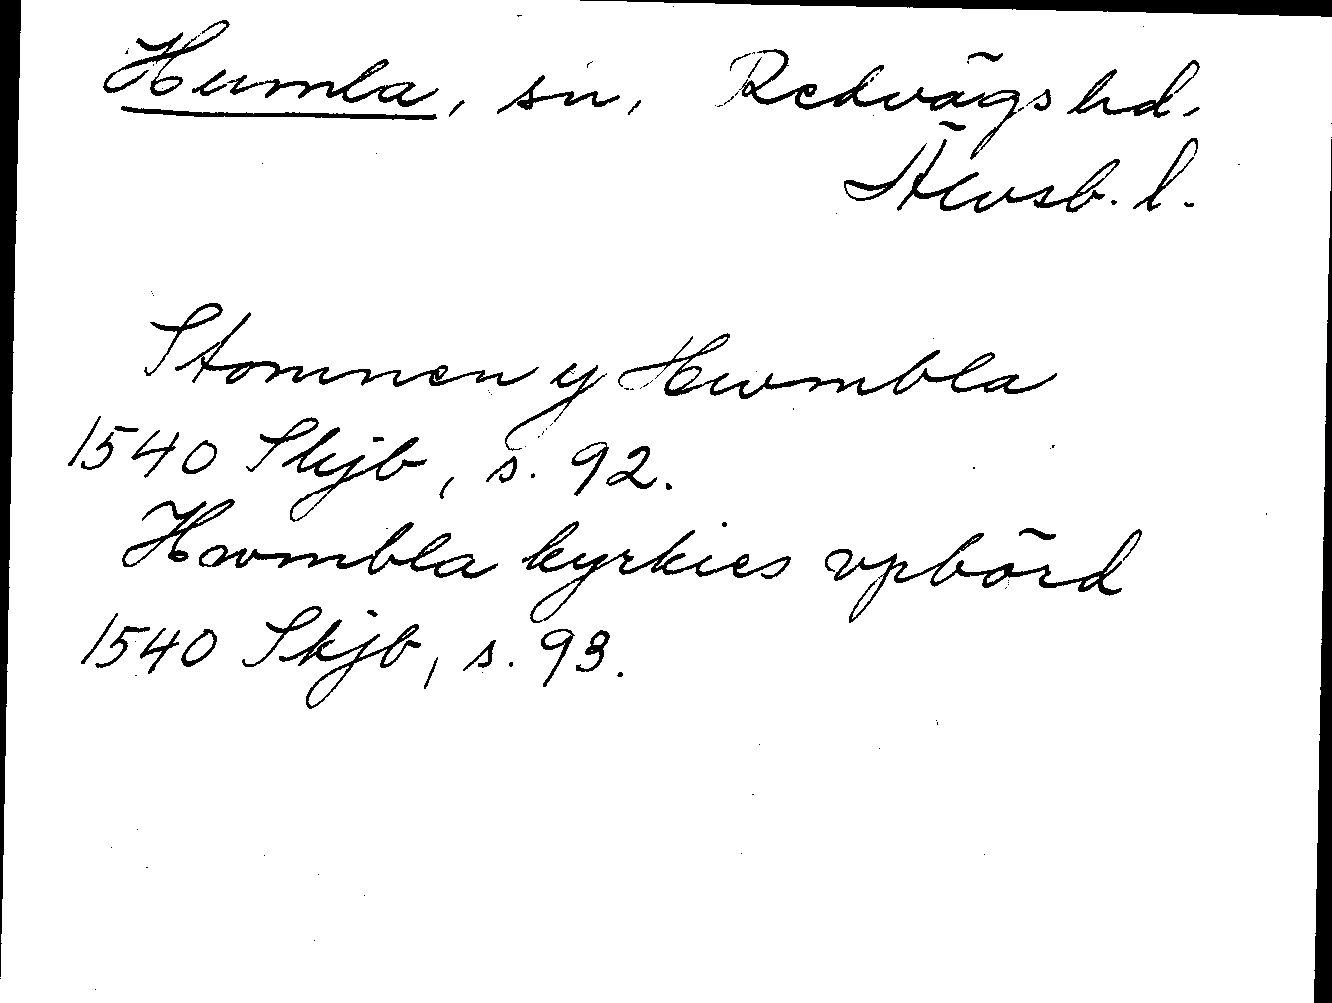 Humla, sn, Redvägs hd.
Älvsb. l.
Stomnen y Hwmbla
1540 Skjb, s. 92.
Hwmbla kyrkies vpbörd
1540 Skjb, s. 93.